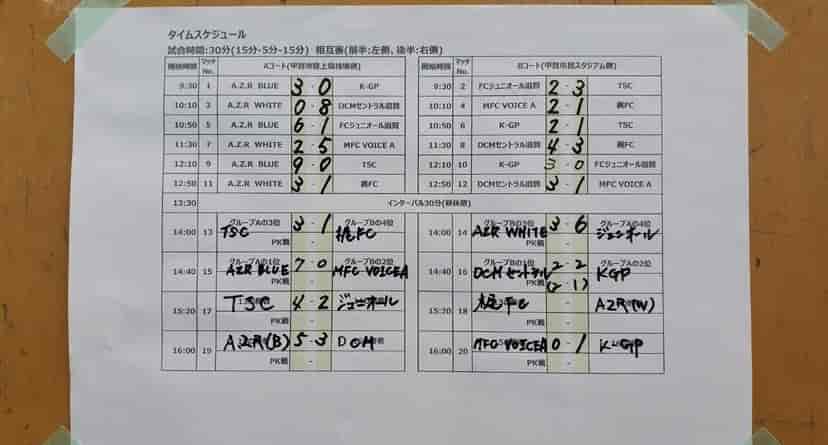 タイムスケジュール
試合時間:30分(15分-5分-15分) 相互審(前半:左側、後半:右側)
開始時間 マッチNo. Aコート(甲賀市陸上競技場側) 開始時間 マッチNo. Bコート(甲賀市民スタジアム側)
9:30 1 A.Z.R BLUE 3 - 0 K-GP 9:30 2 FCジュニオール滋賀 2 - 3 TSC
10:10 3 A.Z.R WHITE 0 8 DCMセントラル滋賀 10:10 4 MFC VOICE A 2 - 1 FC
10:50 5 A.Z.R BLUE 6 - 1 FCジュニオール滋賀 10:50 6 K-GP 2 - 1 TSC
11:30 7 A.Z.R WHITE 2 - 5 MFC VOICE A 11:30 8 DCMセントラル滋賀 4 - 3 FC
12:10 9 A.Z.R BLUE 9 - 0 TSC 12:10 10 K-GP 3 - 0 FCジュニオール滋賀
12:50 11 A.Z.R WHITE 3 - 1 FC 12:50 12 DCMセントラル滋賀 3 - 1 MFC VOICE A
13:30 インターバル30分(昼休憩)
グループAの3位 グループBの4位 グループBの3位 グループAの4位
14:00 13 TSC 3 - 1 FC 14:00 14 AZR WHITE 3 - 6 ジュニオール
PK戦 - PK戦 -
グループAの1位 グループBの2位 グループBの1位 グループAの2位
14:40 15 AZR BLUE 7 - 0 MFC VOICEA 14:40 16 DCMセントラル 2 - 2 KGP
PK戦 - PK戦 (2 1)
15:20 17 TSC 4 - 2 ジュニオール 15:20 18 AZR(W)
PK戦 - PK戦 -
16:00 19 AZR(B) 5 - 3 DCM 16:00 20 MFC VOICEA 0 - 1 KGP
PK戦 - PK戦 -